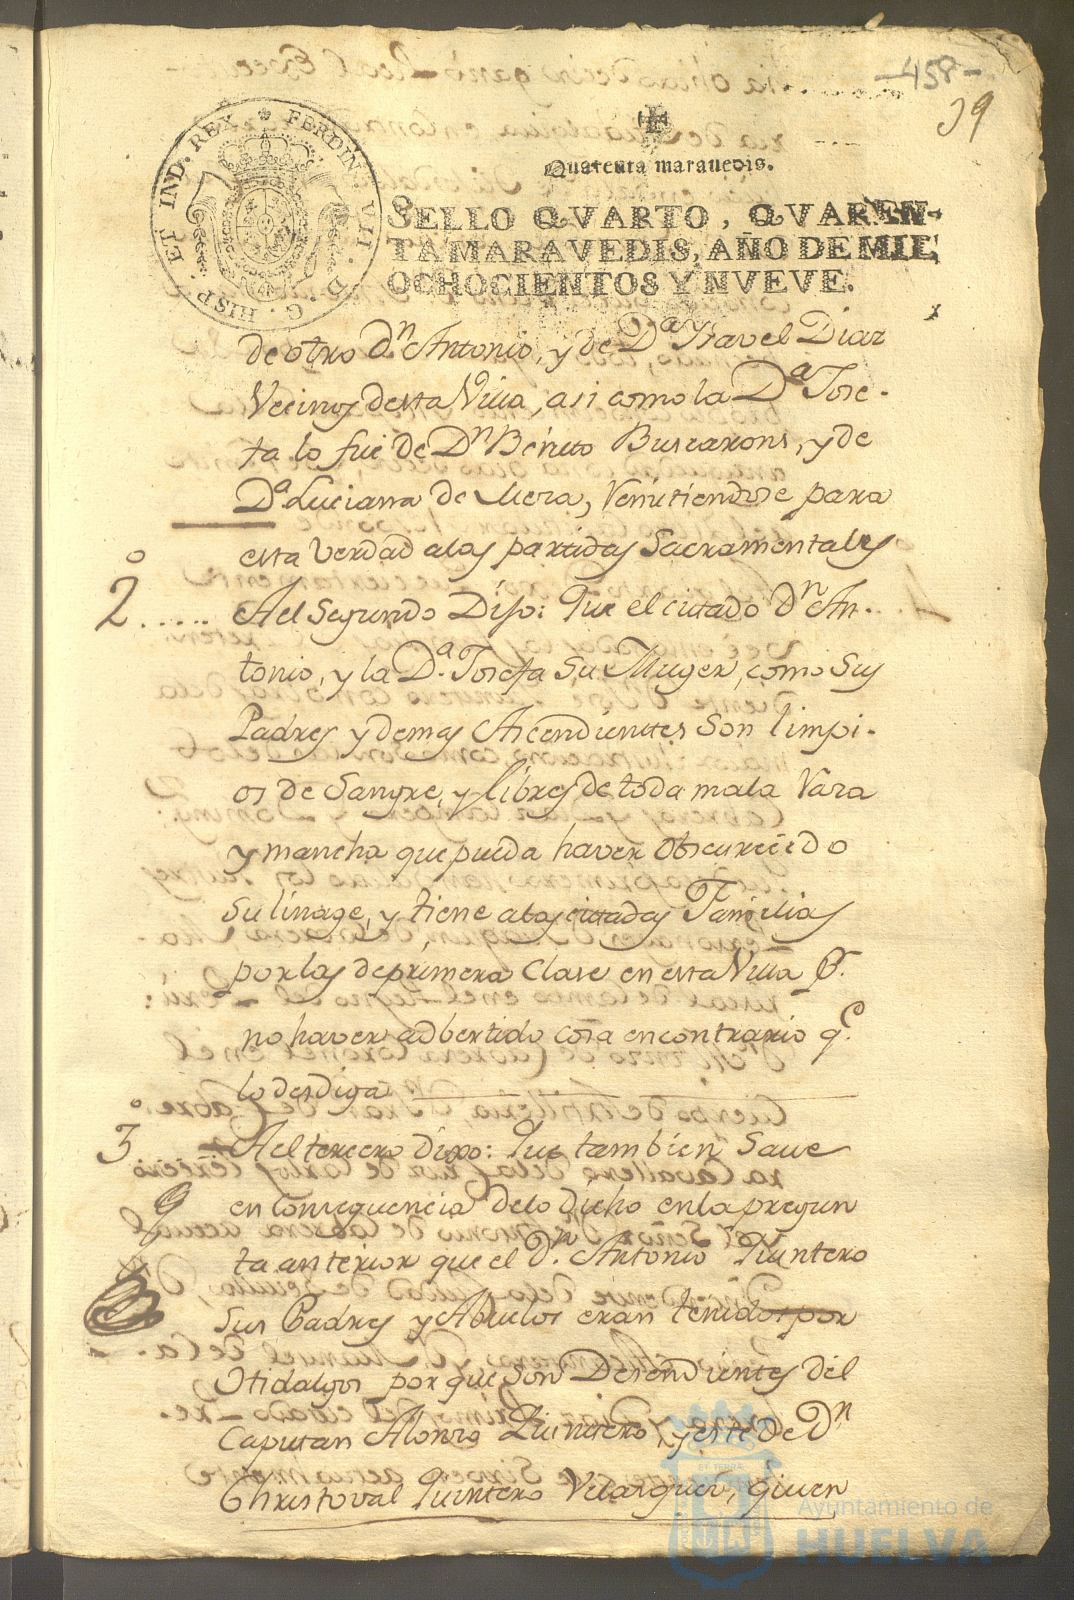 -458-
39
HISP. ET IND. REX FERDIN. VII. D. G.
Quarenta maravedis.
SELLO QVARTO, QVAREN-
TA MARAVEDIS, AÑO DE MIL
OCHOCIENTOS Y NVEVE.
de otro Dn. Antonio, y de Da. Ysavel Diaz
Vecinos desta Villa, asi como la Da. Jose-
ta lo fue de Dn Benito Buscarons, y de
Da. Luciana de Mera, remitiendose para
esta verdad a las partidas Sacramentales
2o..... Ael Segundo Dijo: Que el citado Dn An-
tonio, y la Da. Josefa su Muger, como sus
Padres y demas Ascendientes son limpi-
os de Sangre, y libres de toda mala raza
y mancha que pueda haver obscurecido
su linage, y tiene a las citadas Familias
por las de primera Clase en esta Villa Pr.
no haver adbertido cosa en contrario qe.
lo desdiga
3o Ael tercero dixo: Que tambien save
en consequencia de lo dicho en la pregun
ta anterior que el Dn. Antonio Quintero
sus Padres y Abuelos eran tenidos por
Hidalgos porque son Desendientes del
Capitan Alonzo Quintero, y este de Dn
Christoval Quintero Velazquez, quien
Ayuntamiento de
HUELVA